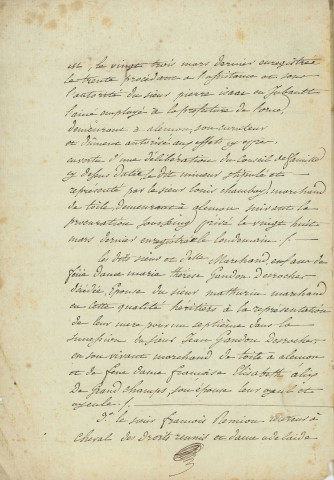 est, le vingt trois mars dernier enregistrée
le trente procédant à l'assistance et sous
l'autorité du sieur pierre isaac
l'ainé employé de la prefecture de l'orne,
demeurant à alençon, son curateur
et dûment autorisé aux effets cy après
en vertu d'une délibération du Conseil de famille
cy dessus datée, le dit mineur stipulé et
représenté par le sieur louis chambay, marchand
de toile, demeurant à alençon suivant la
procuration sous seing privé le vingt huit
mars dernier enregistré le lendemain
le dit sieur et delle Marchand, enfans de
feüe dame marie thérèse Gandon Desroches
décédée, Epouse du sieur mathurin marchand
en cette qualité héritiers à la représentation
de leur mere pour un septième dans la
succession du sieur Jean Gandon desroches
en son vivant marchand de toile à alençon
et de feüe dame françoise Elisabeth alix
de Grand champs, son épouse leur ayeul et
ayeule
3° le sieur françois à
cheval des droits reunis et dame adelaide